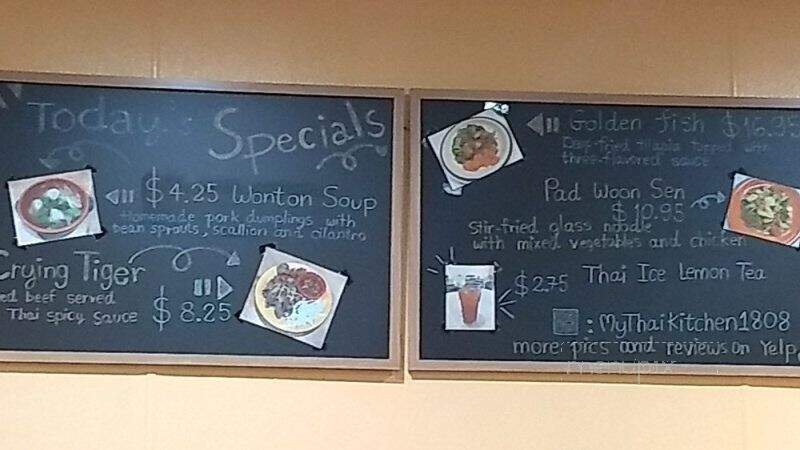 Today's Specials
$4.25 Wonton Soup
Homemade pork dumplings with
bean sprouts, scallion and cilantro
Crying Tiger
ed beef served
Thai spicy sauce $8.25
Golden fish $16.95
Deep-fried tilapia topped with
three-flavored sauce
Pad Woon Sen
$10.95
Stir-fried glass noodle
with mixed vegetables and chicken
$2.75 Thai Ice Lemon Tea
: MyThaiKitchen1808
more pics and reviews on Yelp